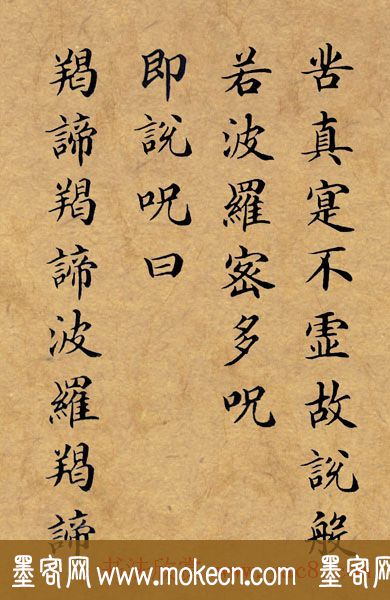 苦真寔不虛故說般
若波羅密多呪
即說呪曰
羯諦羯諦波羅羯諦
墨客网 www.mokecn.com 墨客网